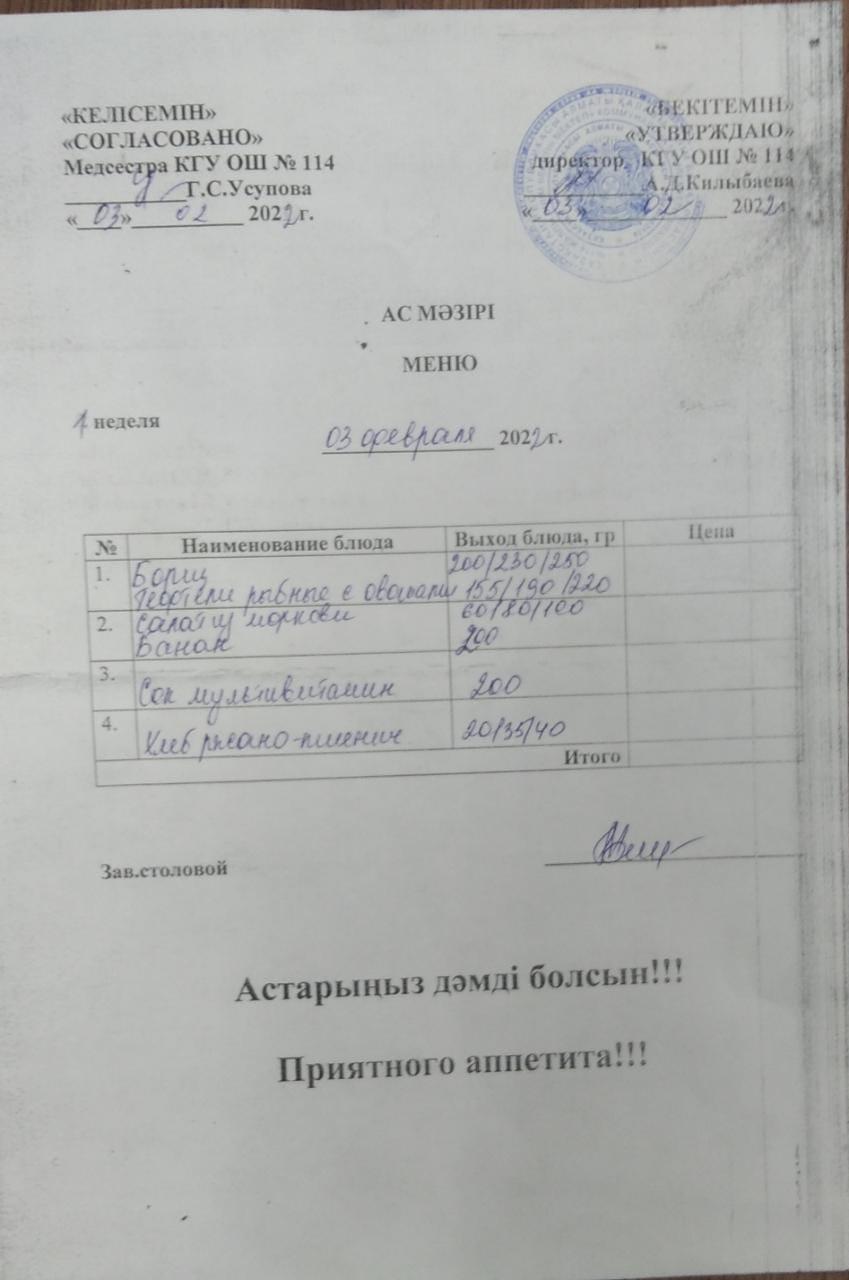 «КЕЛІСЕМІН»
«СОГЛАСОВАНО»
Медсестра КГУ ОШ № 114
Г.С.Усупова
«03» 02 2022г.
«БЕКІТЕМІН»
«УТВЕРЖДАЮ»
директор КГУ ОШ № 114
А.Д.Килыбаева
«03» 02 2022г.
АС МӘЗІРІ
МЕНЮ
1 неделя
03 февраля 2022г.
№ Наименование блюда Выход блюда, гр Цена
1. Борщ 200/230/250
Тефтели рыбные с овощами 155/190/220
2. Салат из моркови 60/80/100
Банан 200
3.
Сок мультивитамин 200
4.
Хлеб ржано-пшенич 20/35/40
Итого
Зав.столовой
Астарыңыз дәмді болсын!!!
Приятного аппетита!!!